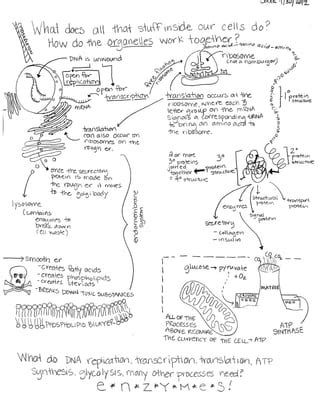 What does all that stuff inside our cells do?
How do the organelles work together?
DNA is unwound
open for replication
open for transcription
mRNA
free floating
ribosome
(not a hamburger)
amino acid - amino acid - amino
translation occurs at the
ribosome, where each 3
letter group on the mRNA
signals a corresponding tRNA
to bring an amino acid to
the ribosome.
1° protein structure
translation
can also occur on
ribosomes on the
rough er.
once the secretory
protein is made on
the rough er it moves
to the golgi body
endomembrane system
lysosome
(contains
enzymes to
break down
cell waste)
2 or more
3° proteins
joined
together
= 4° structure
3°
protein
structure
2°
protein
structure
enzymes
structural
protein
signal
protein
transport
protein
secretory
- collagen
- insulin
smooth er
- creates fatty acids
- creates phospholipids
- creates steroids
- BREAKS DOWN TOXIC SUBSTANCES
PHOSPHOLIPID BILAYER
glucose → pyruvate
+ O₂
ALL OF THE
PROCESSES
ABOVE REQUIRE
THE CURRENCY OF THE CELL - ATP
ATP
SYNTHASE
What do DNA replication, transcription, translation, ATP
synthesis, glycolysis, many other processes need?
e*n*z*y*m*e*s!